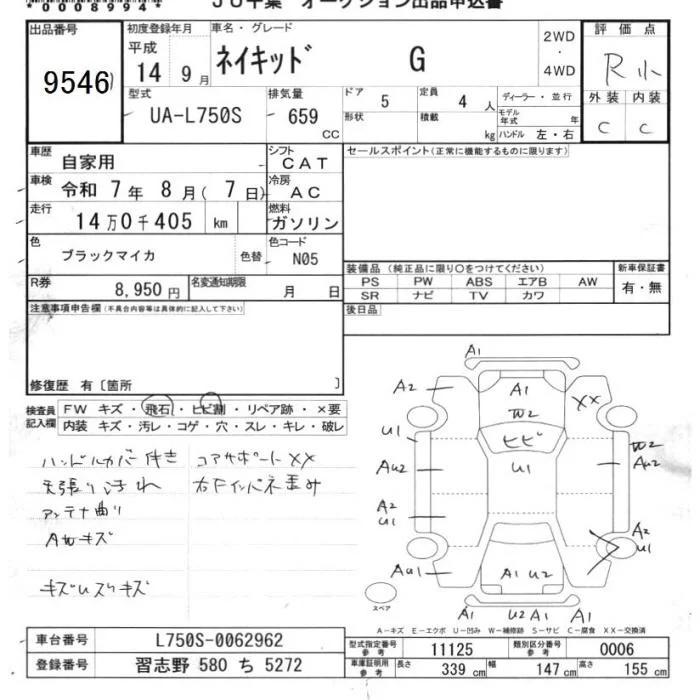 *0008994*
JU千葉 オークション出品申込書
出品番号 初度登録年月 車名・グレード 評価点
9546 平成 14 9月 ネイキッド G 2WD・4WD R小
外装 内装
C C
型式 排気量 ドア 定員 ディーラー・並行
UA-L750S 659CC 5 4人
形状 積載 kg モデル年式 年
ハンドル 左・右
車歴 自家用 シフト CAT セールスポイント(正常に機能するものに限ります)
車検 令和 7年 8月( 7日) 冷房 AC
走行 14万0千405 km 燃料 ガソリン
色 ブラックマイカ 色替 色コード N05
装備品(純正品に限り○をつけてください) 新車保証書
PS PW ABS エアB AW 有・無
SR ナビ TV カワ
R券 8,950円 名変通知期限 月 日
後日品
注意事項申告欄(不具合内容等は具体的に記入して下さい)
修復歴 有〔箇所 〕
検査員記入欄 FW キズ・飛石・ヒビ割・リペア跡・×要
内装 キズ・汚レ・コゲ・穴・スレ・キレ・破レ
ハンドルカバー付き コアサポートXX
天張り汚れ 右Fインパネ歪み
アンテナ曲り
AWキズ
キズUスリキズ
A1
A2 A1 XX
W2
U1 ヒビ W2
AU2 U1 AU2
A2 A2
U1 U1
AU1 A1 U2
A1 U2 A1 A1
スペア
A-キズ E-エクボ U-凹み W-補修跡 S-サビ C-腐食 XX-交換済
車台番号 L750S-0062962 型式指定番号 参考 11125 類別区分番号 参考 0006
登録番号 習志野 580 ち 5272 車庫証明用 参考 長さ 339 cm 幅 147 cm 高さ 155 cm